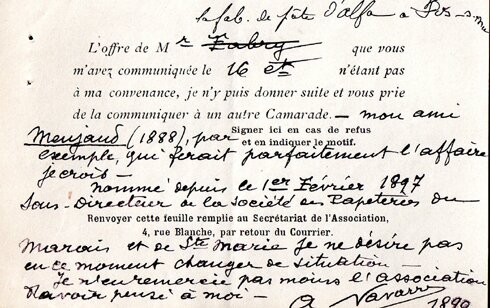 la fab. de pâte d'alfa à Pts-s-mer
L'offre de Mr Fabry que vous
m'avez communiquée le 16 ct n'étant pas
à ma convenance, je n'y puis donner suite et vous prie
de la communiquer à un autre Camarade. — mon ami
Menjaud (1888), par
Signer ici en cas de refus
et en indiquer le motif.
exemple, qui ferait parfaitement l'affaire
je crois —
Nommé depuis le 1er Février 1897
Sous-Directeur de la Société des Papeteries du
Renvoyer cette feuille remplie au Secrétariat de l'Association,
4, rue Blanche, par retour du Courrier.
Marais et de Ste Marie je ne désire pas
en ce moment changer de situation —
Je n'en remercie pas moins l'association
d'avoir pensé à moi —
A Navarre